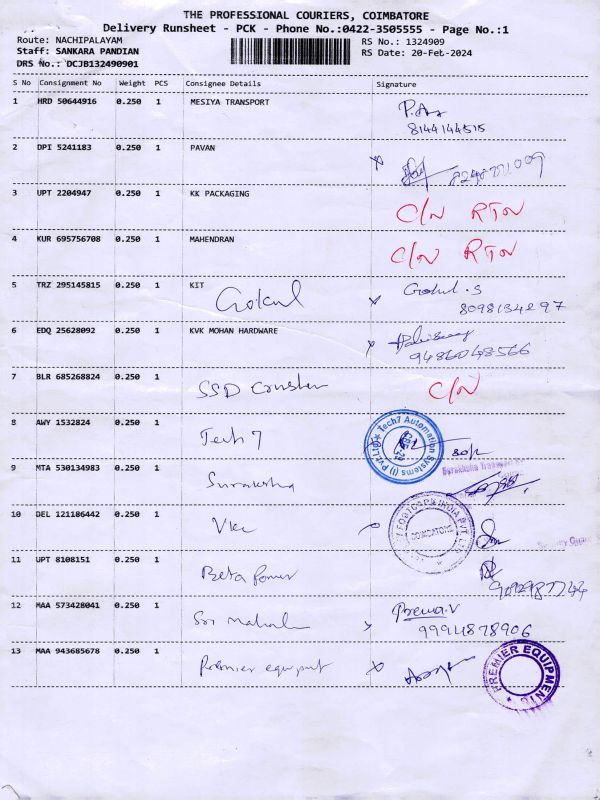 THE PROFESSIONAL COURIERS, COIMBATORE
Delivery Runsheet - PCK - Phone No.:0422-3505555 - Page No.:1
Route: NACHIPALAYAM RS No.: 1324909
Staff: SANKARA PANDIAN RS Date: 20-Feb-2024
DRS No.: DCJB132490901
S No Consignment No Weight PCS Consignee Details Signature
1 HRD 50644916 0.250 1 MESIYA TRANSPORT
8144144515
2 DPI 5241183 0.250 1 PAVAN
3 UPT 2204947 0.250 1 KK PACKAGING C/N RTN
4 KUR 695756708 0.250 1 MAHENDRAN C/N RTN
5 TRZ 295145815 0.250 1 KIT Gokul Gokul.S
8098134297
6 EDQ 25628092 0.250 1 KVK MOHAN HARDWARE
9486048566
7 BLR 685268824 0.250 1 SSD C/N
8 AWY 1532824 0.250 1 Tech 7 Tech7 Automation Systems (I) Pvt Ltd
9 MTA 530134983 0.250 1 Suraksha
10 DEL 121186442 0.250 1 Vkc FOOTCAPS INDIA PVT. LTD COIMBATORE
11 UPT 8108151 0.250 1 Beta Power
12 MAA 573428041 0.250 1 Sri Prema.V
9994878906
13 MAA 943685678 0.250 1 Premier equipment PREMIER EQUIPMENTS